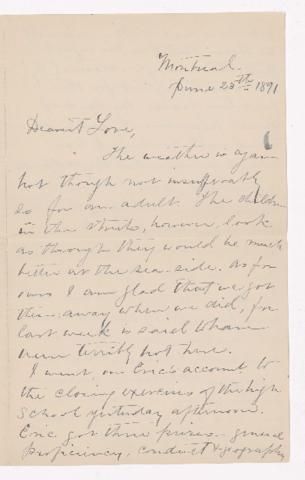 Montreal.
June 25th 1891
Dearest Love,
The weather is again
hot though not insufferably
so for an adult. The children
in the streets, however, look
as through they would be much
better at the sea-side. As for
ours I am glad that we got
them away when we did, for
last week is said to have
been terribly hot here.
I went, on Eric's account, to
the closing exercises of the high
School yesterday afternoon.
Eric got three prizes - general
proficiency, conduct & geography